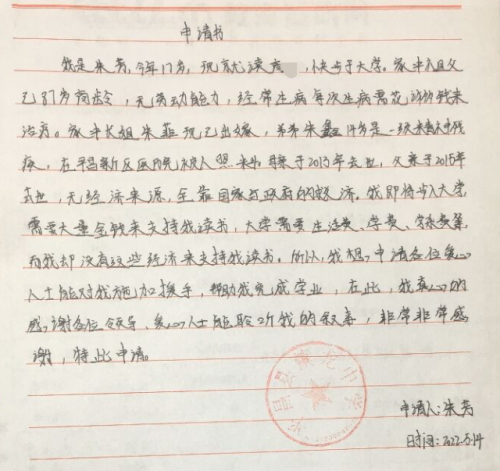 申请书
我是朱芳,今年17岁,现就读高,快步于大学。家中祖父
已87岁高龄,无劳动能力,经常生病每次生病需花的钱来
治疗。家中长姐朱菲现已出嫁,弟弟朱鑫14岁是一级精神残
疾,在平昌新区医院无人照料。母亲于2013年去世,父亲于2015年
去世,无经济来源,全靠国家与政府的救济。我即将步入大学
需要大量金钱来支持我读书,大学需要生活费、学费、杂费等
而我却没有这些经济来支持我读书。所以,我想申请各位爱心
人士能对我施加援手,帮助我完成学业,在此,我真心的
感谢各位领导、爱心人士能聆听我的叙事,非常非常感
谢,特此申请。
申请人:朱芳
时间:2022.5.14
平昌县中学